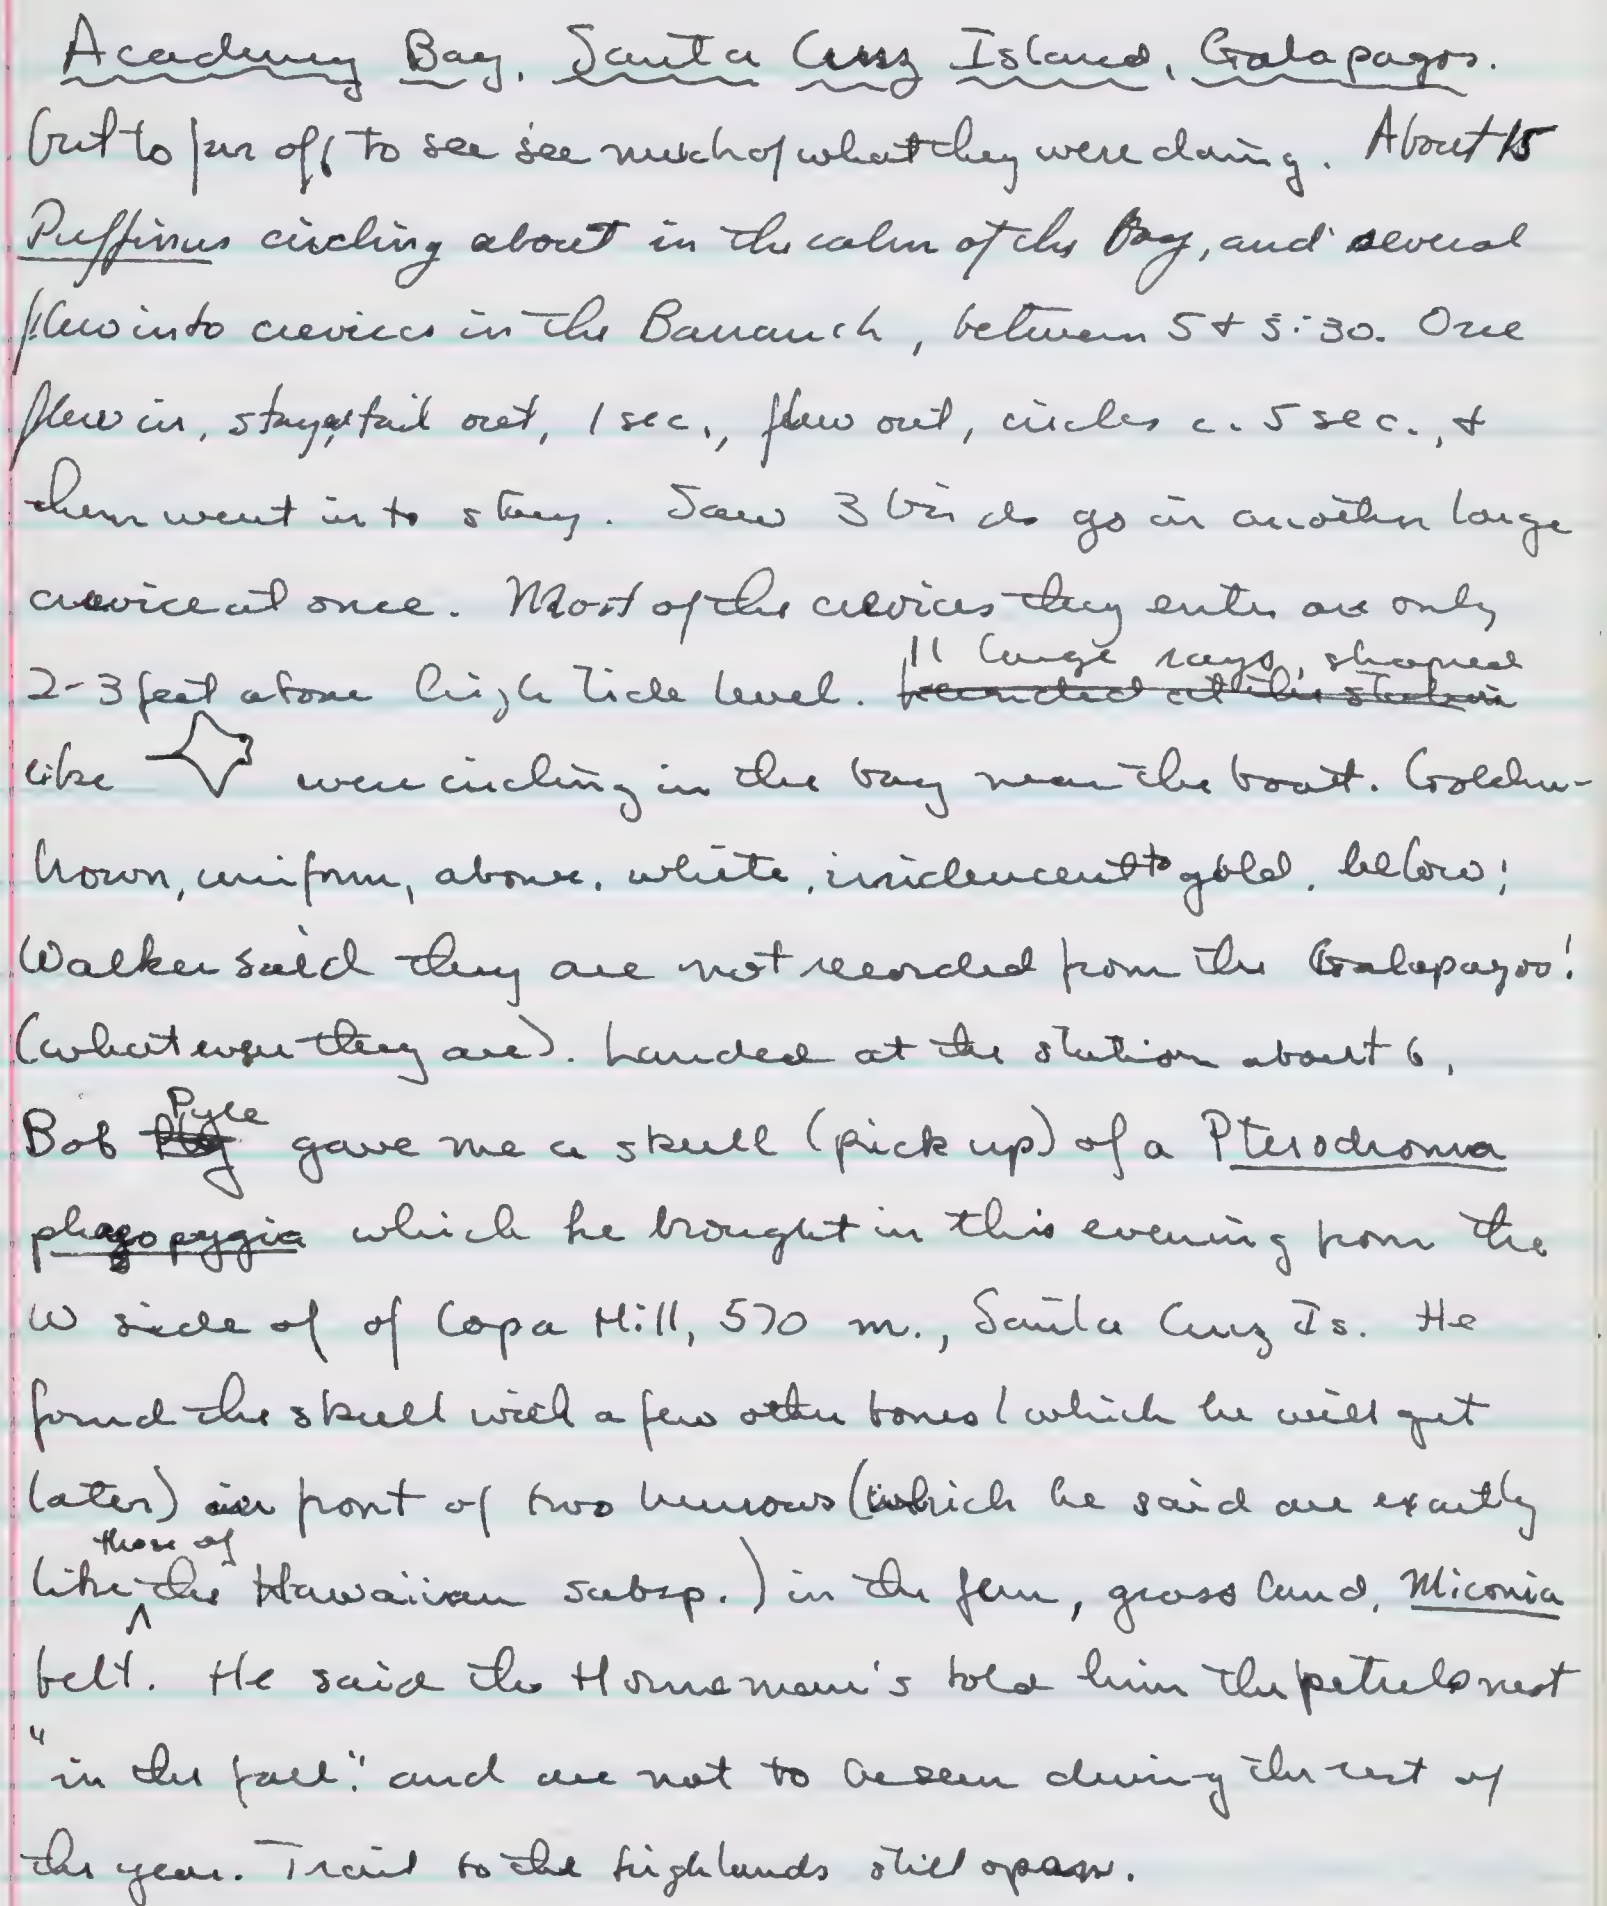 Academy Bay, Santa Cruz Island, Galapagos.
but to far off to see see much of what they were doing. About 15
Puffinus circling about in the calm of the Bay, and several
flew into crevices in the Barranch, between 5 & 5:30. One
flew in, stayed, tail out, 1 sec., flew out, circles c. 5 sec., &
then went in to stay. Saw 3 birds go in another large
crevice at once. Most of the crevices they enter are only
2-3 feet above high tide level. 11 large rays, shaped
like were circling in the bay near the boat. Golden-
brown, uniform, above, white, iridencent to gold, below;
Walker said they are not recorded from the Galapagos!
(what ever they are). Landed at the station about 6.
Bob Pyle gave me a skull (pick up) of a Pterodroma
phaeopygia which he brought in this evening from the
W side of of Copa Hill, 570 m., Santa Cruz Is. He
found the skull with a few other bones (which he will get
later) in front of two burrows (which he said are exactly
like those of the Hawaiian subsp.) in the fern, grass land, Miconia
belt. He said the Horneman's told him the petrels nest
"in the fall." and are not to be seen during the rest of
the year. Trail to the highlands still open.